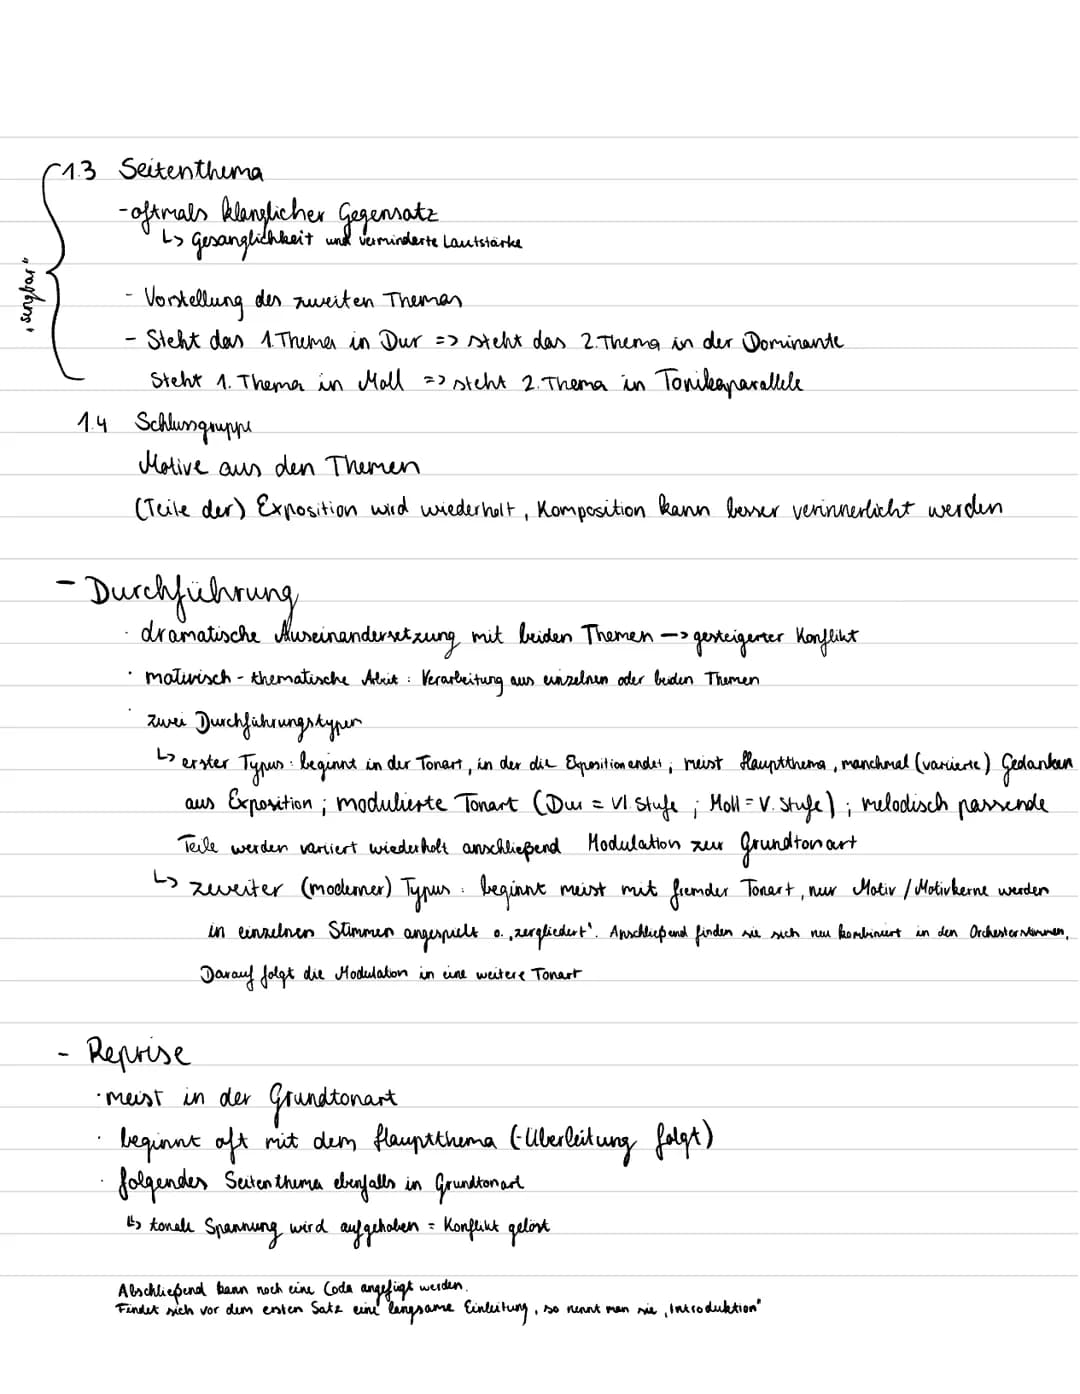 1.3 Seitenthema
- oftmals klanglicher Gegensatz
↳ Gesanglichkeit und verminderte Lautstärke
"singbar"
- Vorstellung des zweiten Themas
- Steht das 1. Thema in Dur => steht das 2. Thema in der Dominante
Steht 1. Thema in Moll => steht 2. Thema in Tonikaparallele
1.4 Schlussgruppe
Motive aus den Themen
(Teile der) Exposition wird wiederholt, Komposition kann besser verinnerlicht werden
- Durchführung
· dramatische Auseinandersetzung mit beiden Themen —> gesteigerter Konflikt
· motivisch - thematische Arbeit : Verarbeitung aus einzelnen oder beiden Themen
· zwei Durchführungstypen
↳ erster Typus : beginnt in der Tonart, in der die Exposition endet ; meist Hauptthema, manchmal (variierte) Gedanken
aus Exposition ; modulierte Tonart (Dur = VI. Stufe ; Moll = V. Stufe) ; melodisch passende
Teile werden variiert wiederholt anschließend Modulation zur Grundtonart
↳ zweiter (moderner) Typus : beginnt meist mit fremder Tonart, nur Motiv / Motivkerne werden
in einzelnen Stimmen angespielt o. „zergliedert". Anschließend finden sie sich neu kombiniert in den Orchesterstimmen,
Darauf folgt die Modulation in eine weitere Tonart
- Reprise
· meist in der Grundtonart
· beginnt oft mit dem Hauptthema (-Überleitung folgt)
· folgendes Seitenthema ebenfalls in Grundtonart
↳ tonale Spannung wird aufgehoben = Konflikt gelöst
Abschließend kann noch eine Coda angefügt werden.
Findet sich vor dem ersten Satz eine langsame Einleitung, so nennt man sie „Introduktion"